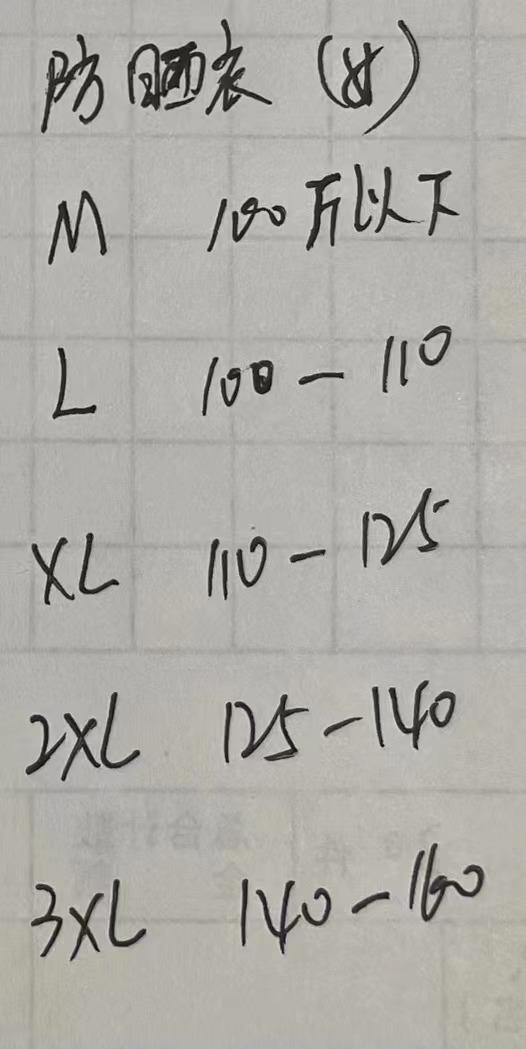 防晒衣（女）
M 100斤以下
L 100－110
XL 110－125
2XL 125－140
3XL 140－160